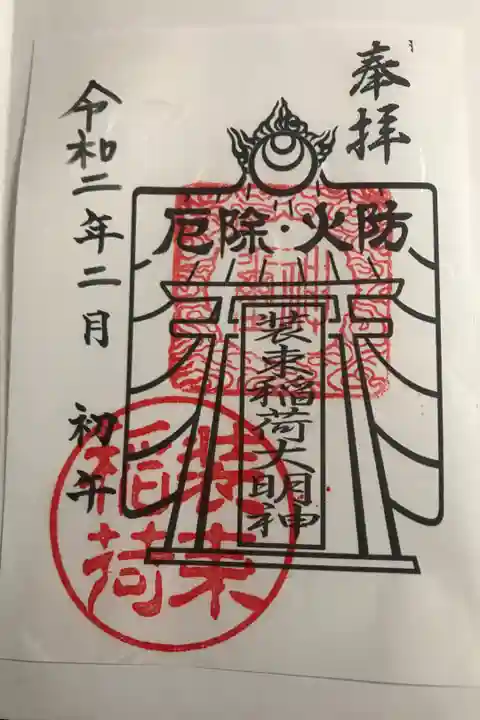 奉拝
厄除・火防
装束稲荷大明神
令和二年二月 初午
装束
稲荷